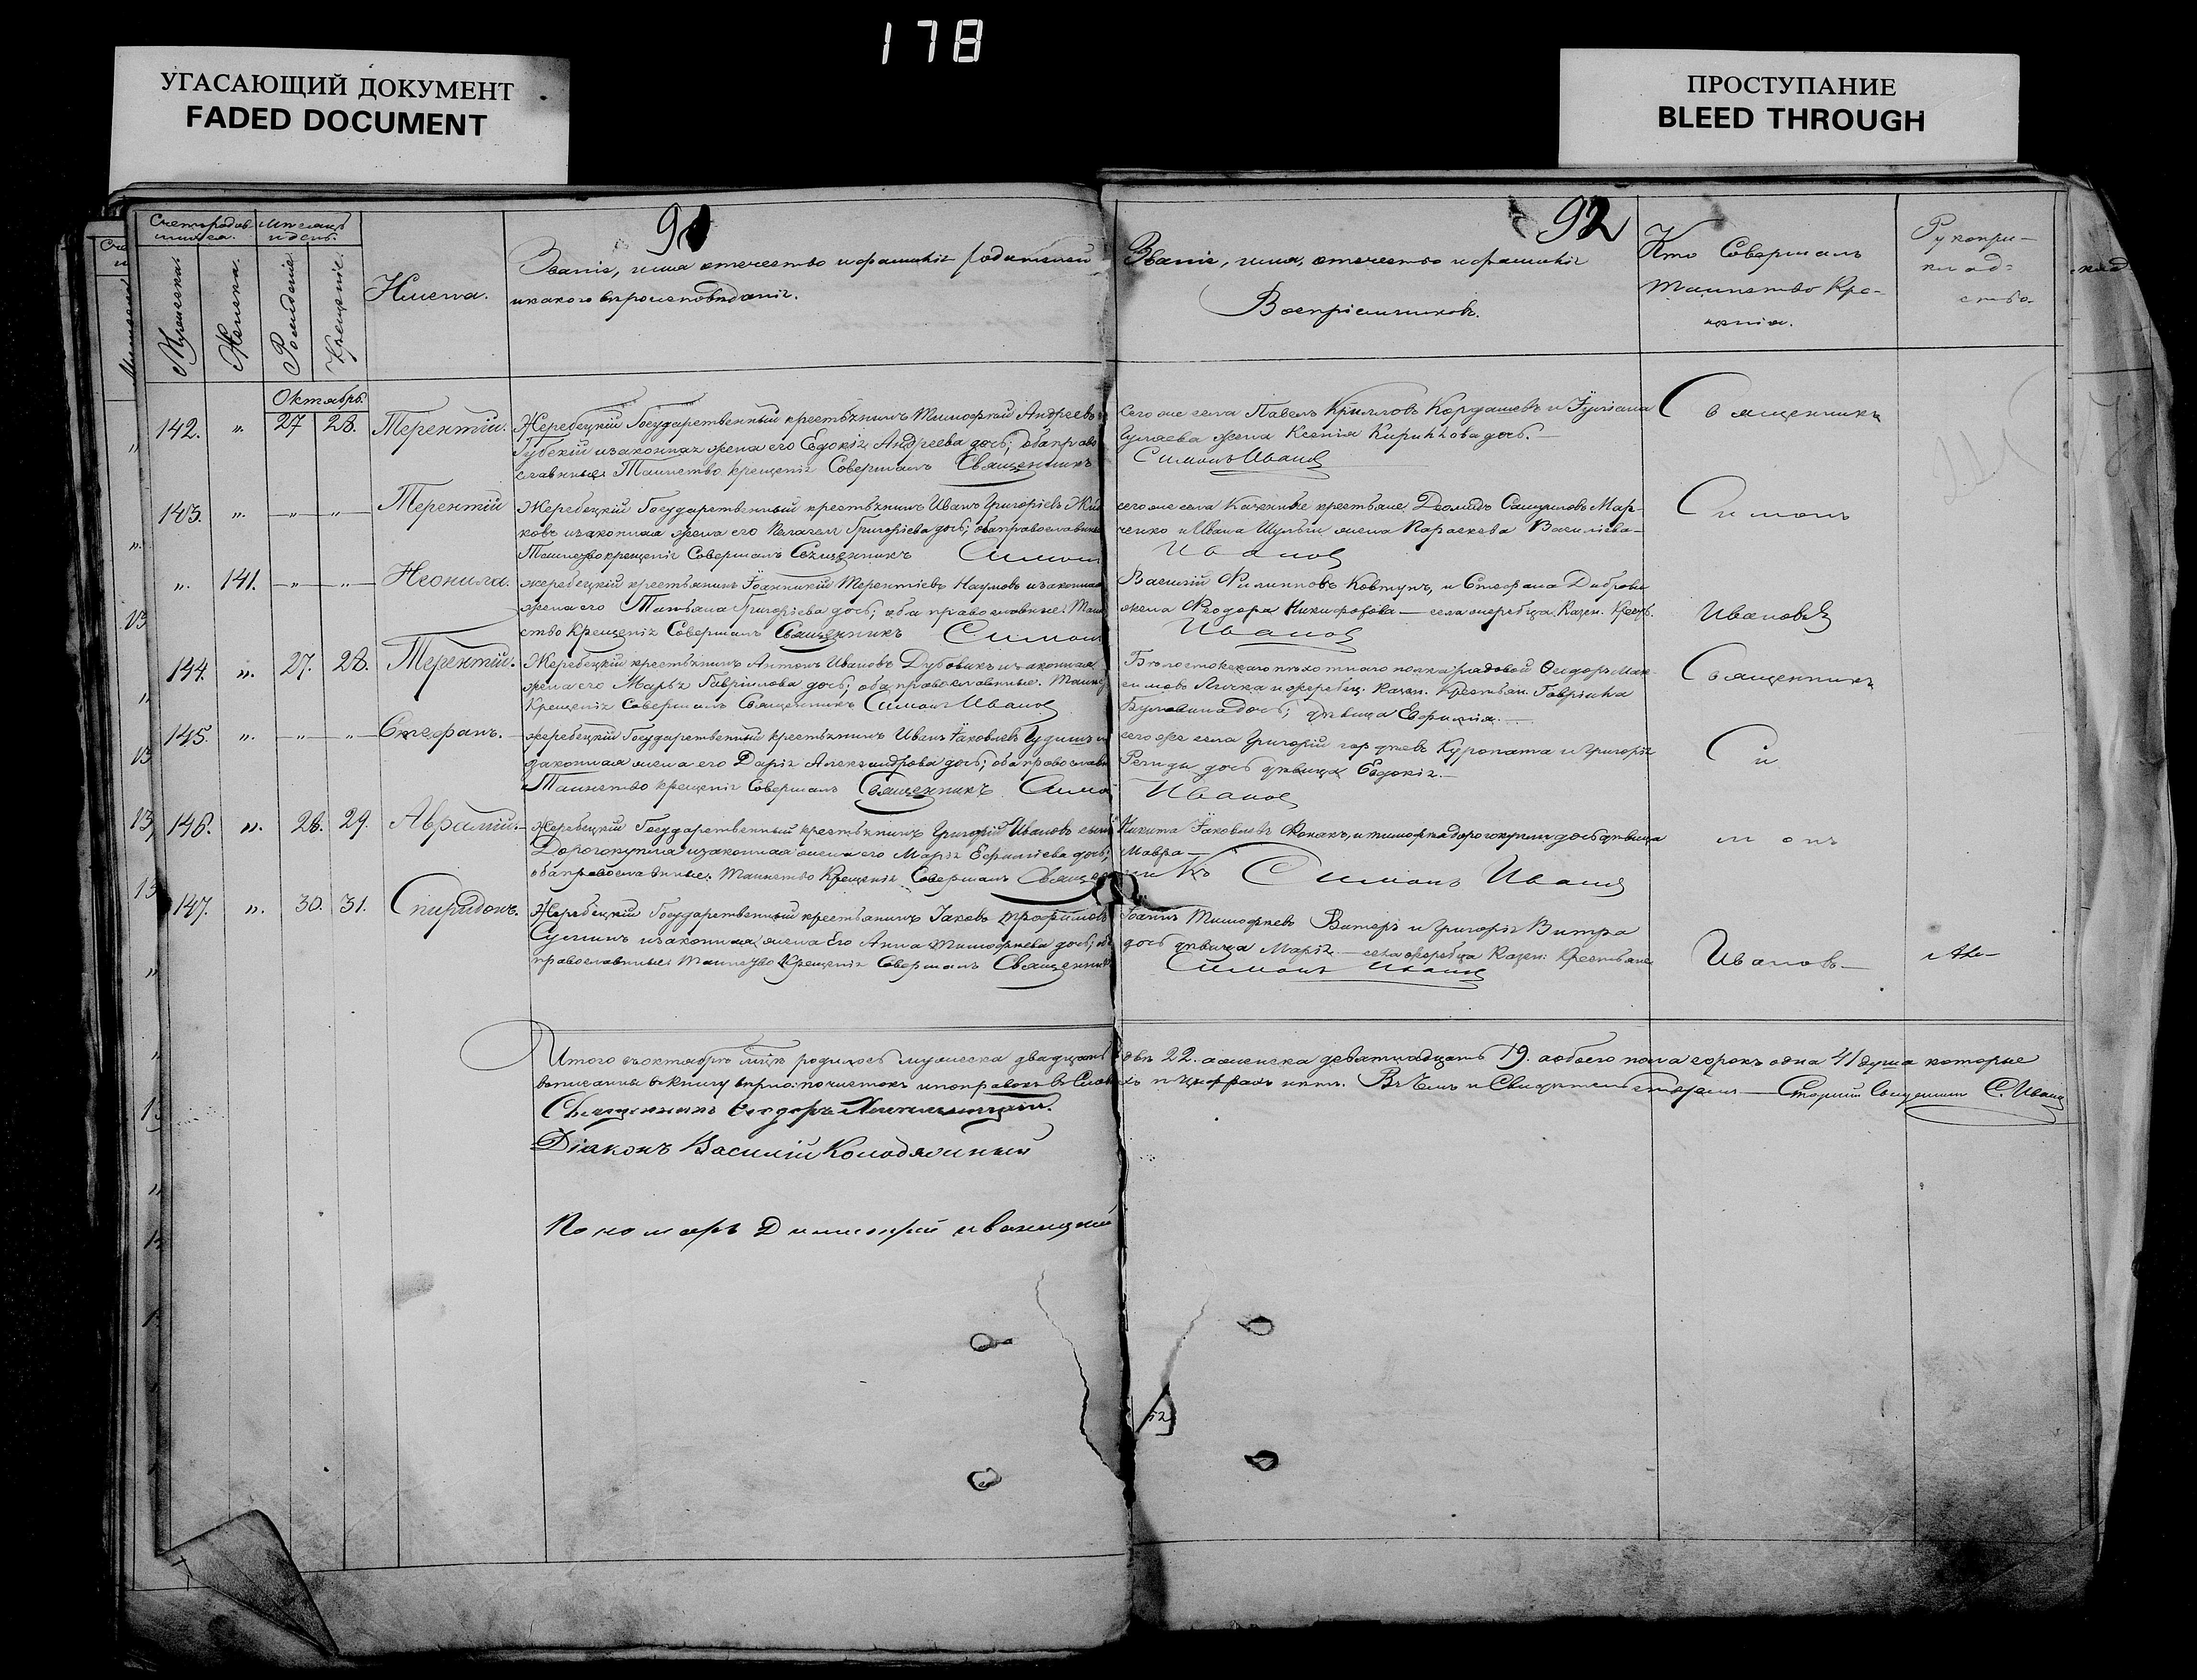 178
УГАСАЮЩИЙ ДОКУМЕНТ
FADED DOCUMENT
ПРОСТУПАНИЕ
BLEED THROUGH
91
92
Счетъ родив-
шихся.
Мѣсяцъ
и день.
Мужеска.
Женска.
Рожденіе.
Крещеніе.
Имена.
Званіе, имя отечество и фамилія родителей
и какого вѣроисповѣданія.
Званіе, имя, отечество и фамилія
Воспріемниковъ.
Кто Совершалъ
таинство Кре-
щенія.
Рукопри-
клад-
ство.
Октябрь.
142. " 27 28. Терентій.
Жеребецкій Государственный крестьянинъ Тимофей Андреевъ
Губскій и законная жена его Евдокія Андреева дочь; оба право
славныя Таинство крещенія Совершалъ Священникъ
сего же села Павелъ Кириловъ Кордашевъ и Іуліана
жена Ксенія Кирилова дочь.
Симонъ Иванов
Священникъ
143. " " " Терентій
Жеребецкій Государственный крестьянинъ Иванъ Григоріевъ
ковъ и законная жена его Пелагея Григоріева дочь, оба православные
Таинство крещенія Совершалъ Священникъ Симонъ
сего же села крестьяне Діомидъ Самуиловъ Мар-
ченко и Ивана Шульги жена Параскева Василіева
Иванов
Симонъ
" 141. " " Неонила.
жеребецкій крестьянинъ Іоанникій Терентіевъ Наумовъ и законная
жена его Татьана Григоріева дочь; оба православные: Таин
ство Крещенія Совершалъ Священникъ Симон
Василій Филипповъ Ковтунъ, и Стефана Диброва
жена Феодора Никифорова — села жеребца Казен. Крест.
Иванов
Ивановъ
144. " 27. 28. Терентій.
Жеребецкій крестьянинъ Антонъ Ивановъ Дубовикъ и законная
жена его Марья Гавріилова дочь; оба православные. Таин
Крещенія Совершалъ Священникъ Симонъ Иванов
Бѣлостокскаго пѣхотнаго полка рядовой Ѳедоръ Мак-
симовъ Личка и жеребец. Казен. Крестьян. Гавріила
дочь; дѣвица Евфимія.
Священникъ
145. " " " Стефанъ.
жеребецкій Государственный крестьянинъ Иванъ Іаковлевъ и
законная жена его Дарія Александрова дочь; оба православн
Таинство крещенія Совершалъ Священникъ Симо
сего же села Григорій Куропата и Григорія
Региды дочь дѣвица Евдокія.
Иванов
Си
146. " 28. 29. Аврамій.
Жеребецкій Государственный крестьянинъ Григорій Ивановъ сынъ
Дорогокупля и законная жена его Марія Ефимиева дочь;
оба православные. Таинство Крещенія Совершалъ Священ
Никита Іаковлевъ Конакъ, и тимофея дорогокупли дочь дѣвица
Мавра
никъ Симонъ Иванов
монъ
147. " 30. 31. Спиридонъ.
Жеребецкій Государственный крестьянинъ Іаковъ Трофимовъ
и законная жена Его Анна Тимофеева дочь, оба
православные: Таинство Крещенія Совершалъ Священник
Іоаннъ Тимофеевъ Витеръ и Григорія Витра
дочь дѣвица Марія. — села жеребца Казен: Крестьяне
Симонъ Иванов
Ивановъ
Итого въ октябрѣ м-цѣ родилось мужеска двадцать двѣ 22. а женска девятнадцать 19. а обоего пола сорокъ одна 41 душа которые
вописанны въ книгу вѣрно: по чистокъ и поправокъ въ Словахъ и цыфрахъ нѣтъ. Въ Чемъ и Свидѣтельствуемъ — Старшій Священник С. Иванов
Священникъ Ѳеодоръ
Діаконъ Василій Колодяжный
Пономарь Димитрій
52